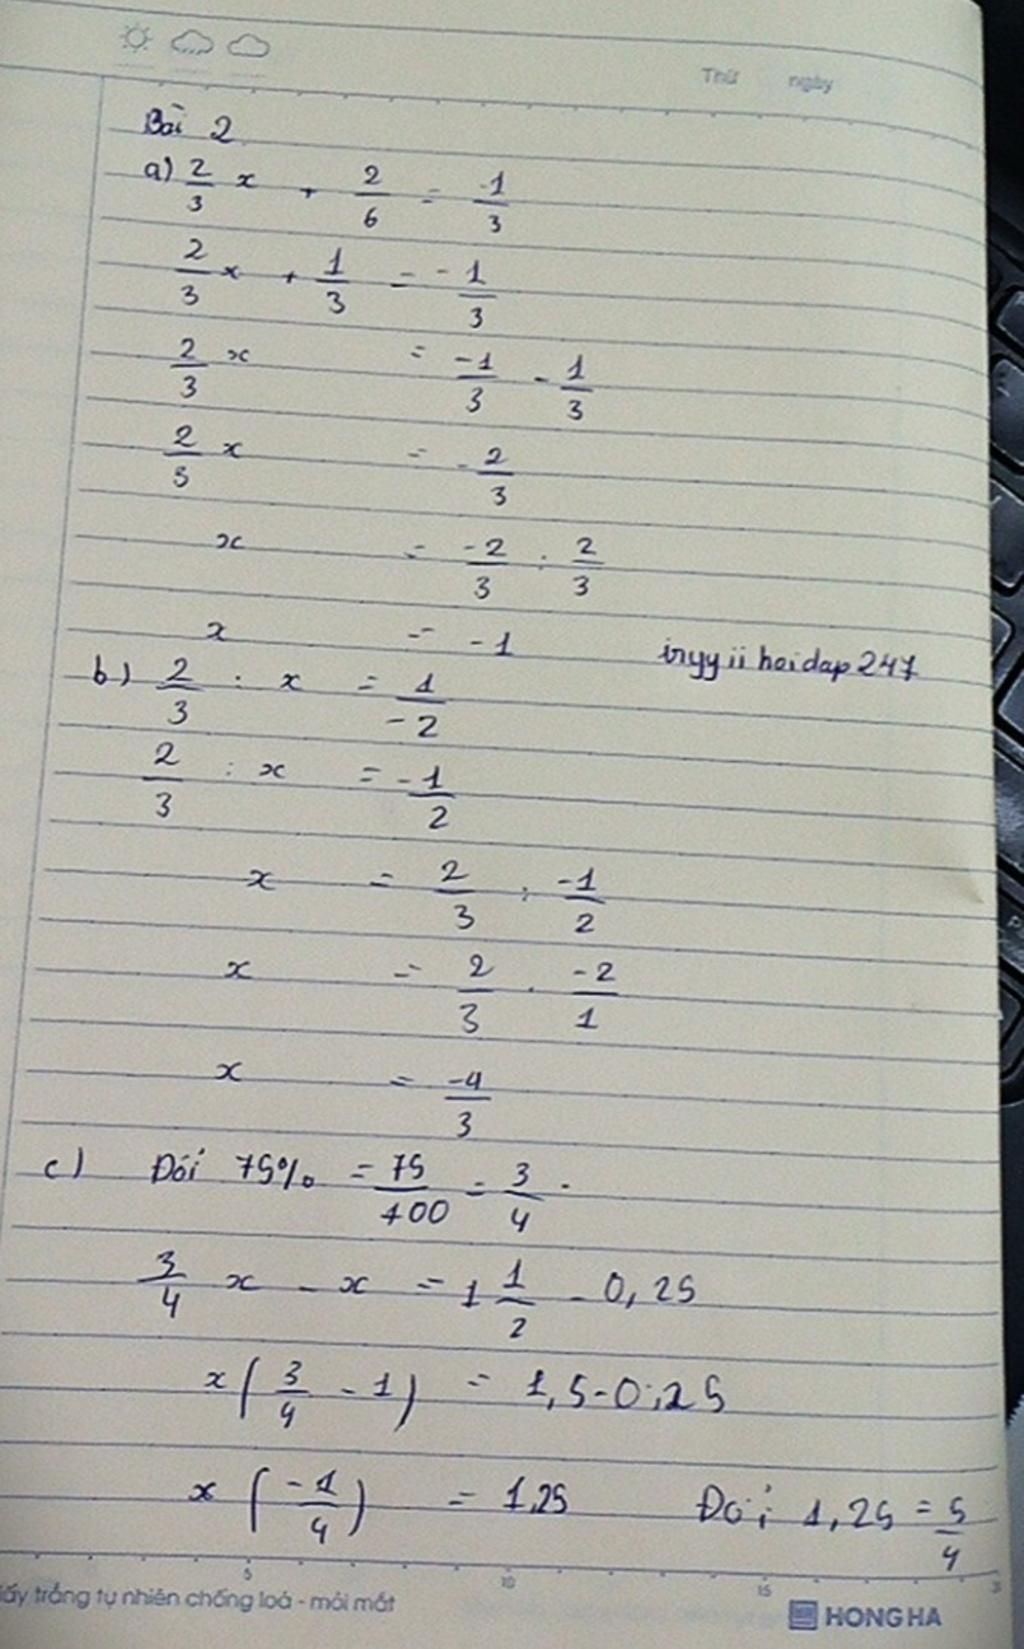 Thứ ngày
Bài 2
a) 2/3 x + 2/6 = -1/3
2/3 x + 1/3 = -1/3
2/3 x = -1/3 - 1/3
2/3 x = -2/3
x = -2/3 : 2/3
x = -1
inyy ii hoidap 247
b) 2/3 : x = 1/-2
2/3 : x = -1/2
x = 2/3 : -1/2
x = 2/3 . -2/1
x = -4/3
c) Đổi 75% = 75/100 = 3/4 .
3/4 x - x = 1 1/2 - 0,25
x ( 3/4 - 1 ) = 1,5 - 0,25
x ( -1/4 ) = 1,25 Đổi 1,25 = 5/4
5 10 15
iấy trắng tự nhiên chống loá - mỏi mắt
HONG HA